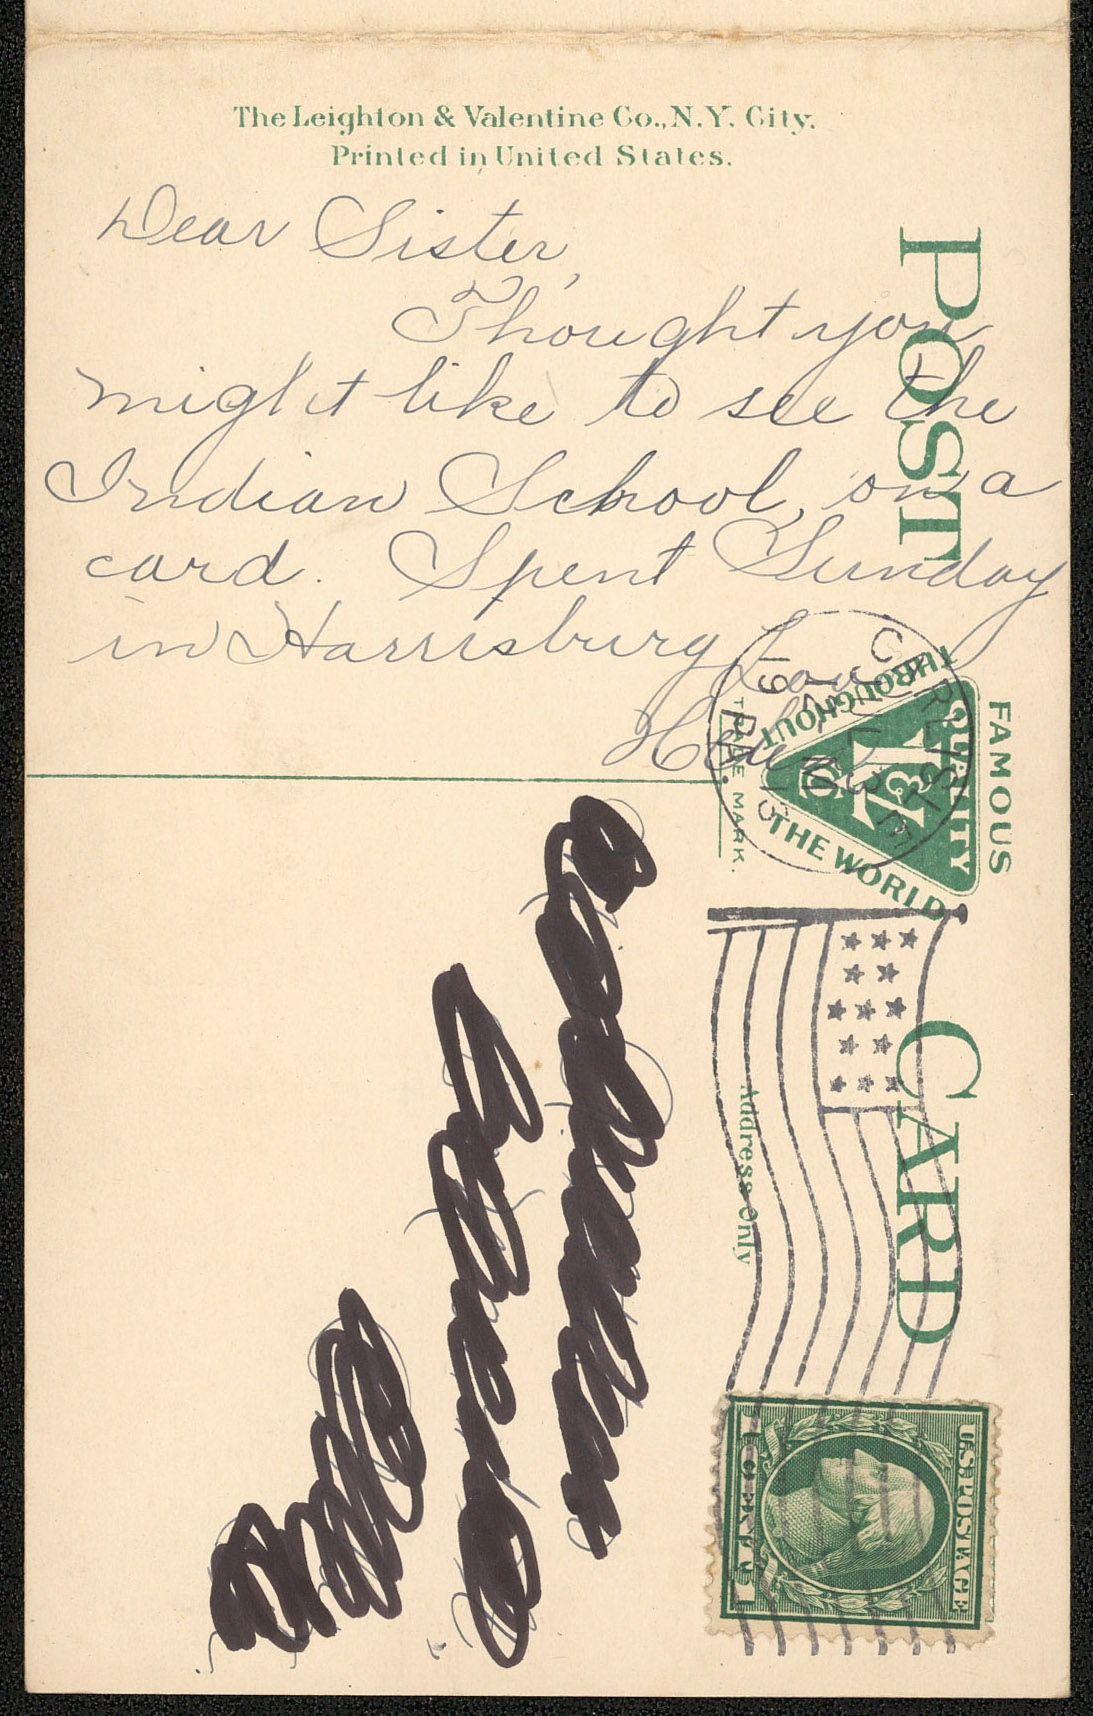 The Leighton & Valentine Co., N.Y. City.
Printed in United States.
Dear Sister,
Thought you
might like to see the
Indian School, on a
card. Spent Sunday
in Harrisburg
POST CARD
FAMOUS
THROUGHOUT
THE WORLD
QUALITY
L&V
Co
TRADE MARK.
CARLISLE
PA.
JUL
Address Only
U.S. POSTAGE
1 CENT 1